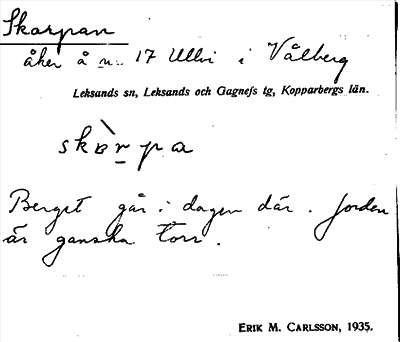 Skarpan
åker å n:r 17 Ullvi i Vålberg
Leksands sn, Leksands och Gagnefs tg, Kopparbergs län.
skàrpa
Berget går i dagen där. Jorden
är ganska torr.
ERIK M. CARLSSON, 1935.